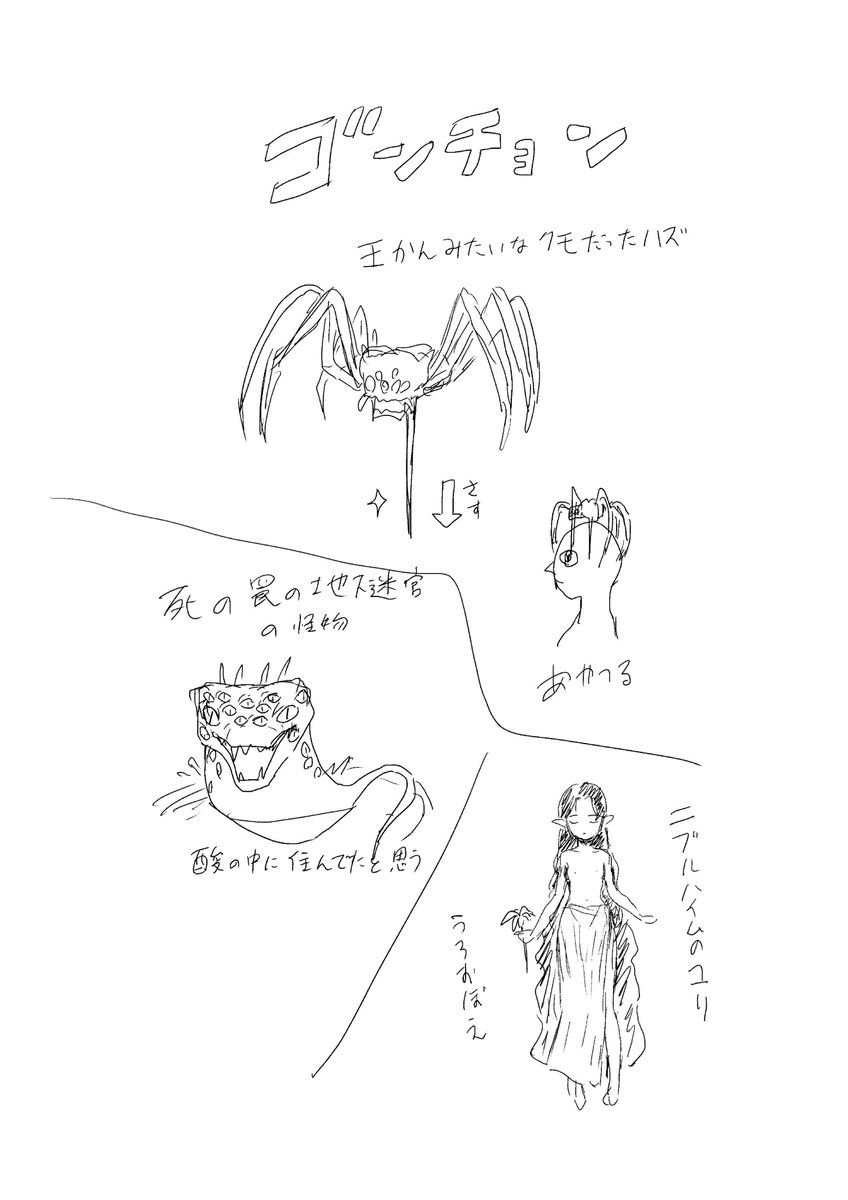 ゴンチョン
王かんみたいなクモだったハズ
さす
あやつる
死の罠の地下迷宮
の怪物
酸の中に住んでたと思う
ニブルハイムのユリ
うろおぼえ